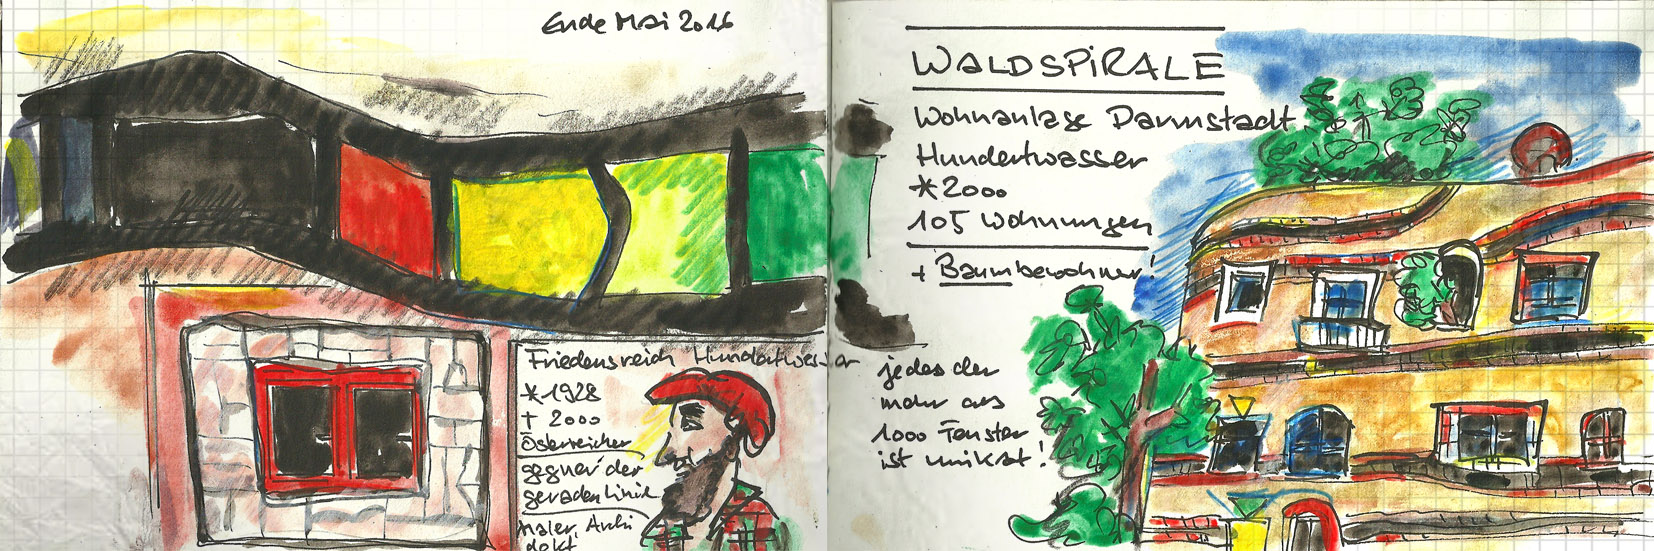 Ende Mai 2016
Friedensreich Hundertwasser
*1928
† 2000
Österreicher
gegner der
geraden Linie
Maler, Archi
dokt
WALDSPIRALE
Wohnanlage Darmstadt
Hundertwasser
*2000
105 Wohnungen
+ Baumbewohner!
jedes der
mehr als
1000 Fenster
ist unikat!